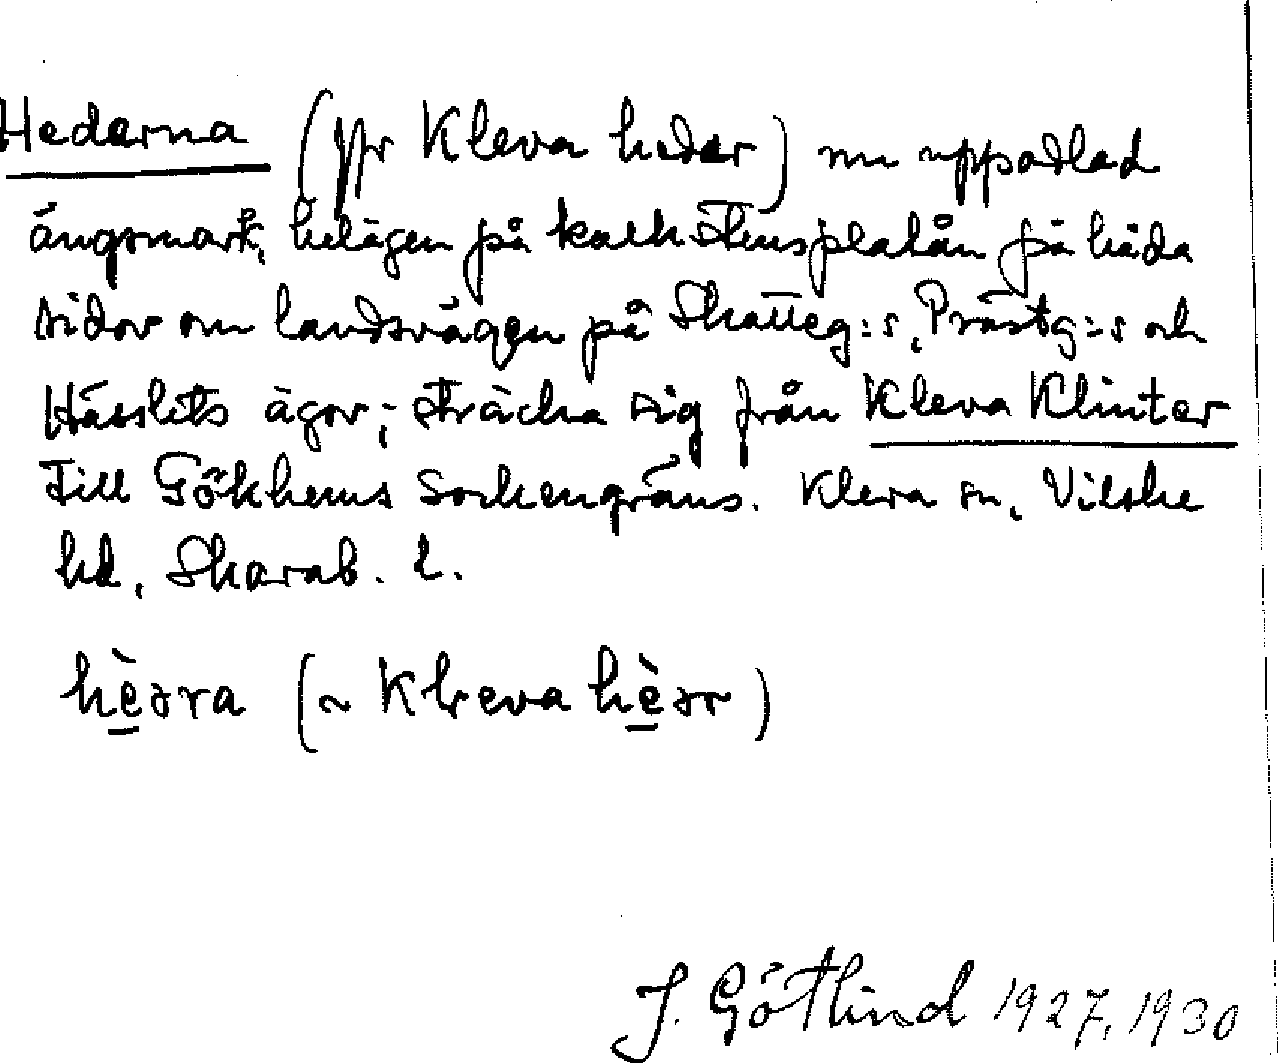 Hederna (ɔ: Kleva heder) nu uppodlad
ängsmark, belägen på kalkstensplatån på båda
sidor om landsvägen på Skatteg:s, Prästg:s och
Hässlets ägor; sträcka sig från Kleva Klinter
till Gökhems sockengräns. Kleva sn, Vilske
hd, Skarab. l.
hèra (~ Kleva hèr)
J. Götlind 1927, 1930